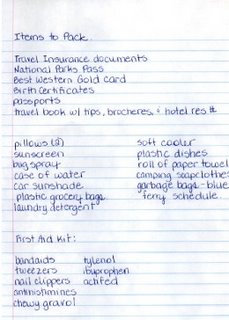 Items to Pack.
Travel Insurance documents
National Parks Pass
Best Western Gold Card
Birth Certificates
passports
travel book w/ tips, brocheres, & hotel res #
pillows (2)
sunscreen
bug spray
case of water
car sunshade
plastic grocery bags
laundry detergent
soft cooler
plastic dishes
roll of paper towel
camping soap clothes
garbage bags - blue
ferry schedule
First Aid Kit:
bandaids
tweezers
nail clippers
antihistimines
chewy gravol
tylenol
ibuprophen
actifed